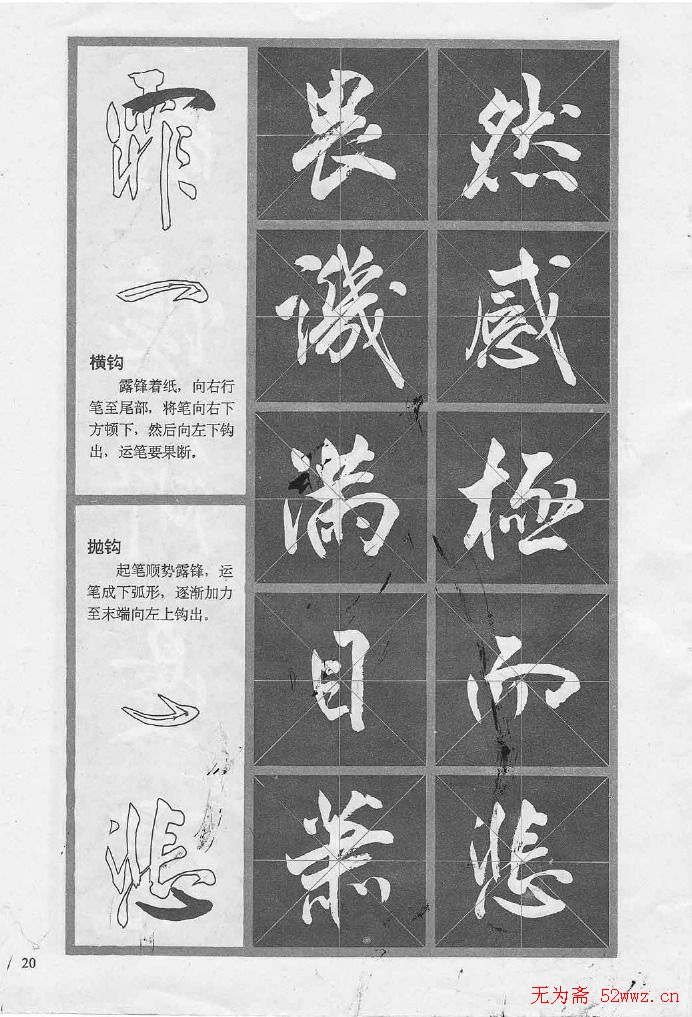 霏
横钩
露锋着纸，向右行
笔至尾部，将笔向右下
方顿下，然后向左下钩
出，运笔要果断。
抛钩
起笔顺势露锋，运
笔成下弧形，逐渐加力
至末端向左上钩出。
悲
畏
譏
滿
目
蕭
然
感
極
而
悲
20
无为斋 52wwz.cn